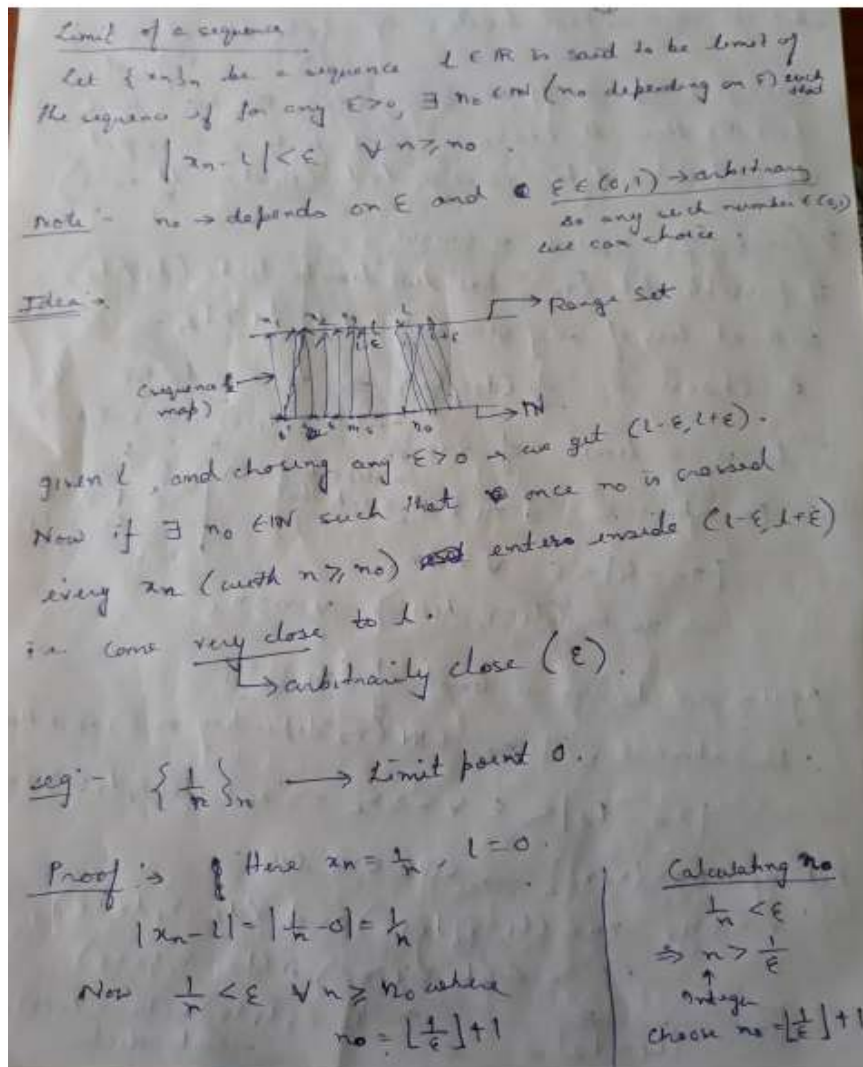 Limit of a sequence
Let {xn}n be a sequence l ∈ IR is said to be limit of
the sequence if for any ε>0, ∃ no ∈ IN (no depending on ε) such that
|xn - l| < ε ∀ n ≥ no.
Note :- no → depends on ε and ε ∈ (0,1) → arbitrary
so any such number ∈ (0,1)
we can choice.
Idea :→
→ Range Set
(sequence map) →
→ IN
no
given l, and chosing any ε > 0 → we get (l-ε, l+ε).
Now if ∃ no ∈ IN such that once no is crossed
every xn (with n ≥ no) enters inside (l-ε, l+ε)
i.e. come very close to l.
↳ arbitrarily close (ε).
eg :- {1/n}n → Limit point 0.
Proof :→ Here xn = 1/n, l = 0.
|xn - l| = |1/n - 0| = 1/n
Now 1/n < ε ∀ n ≥ no where
no = ⌊1/ε⌋ + 1
Calculating no
1/n < ε
⇒ n > 1/ε
↑
Integer
Choose no = ⌊1/ε⌋ + 1